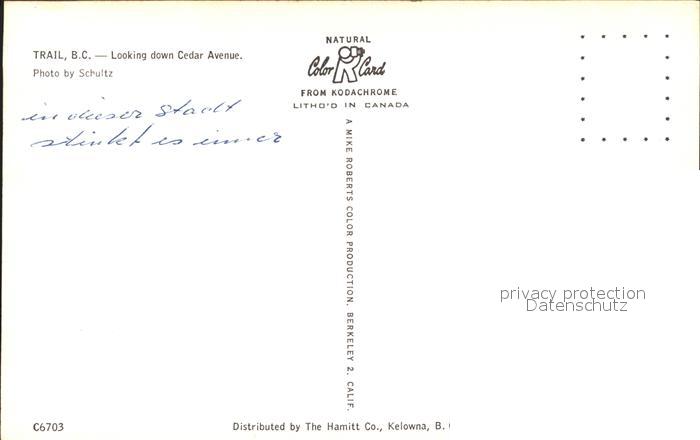 TRAIL, B.C. — Looking down Cedar Avenue.
Photo by Schultz
in dieser Stadt
stinkt es immer
NATURAL
Color Card
FROM KODACHROME
LITHO'D IN CANADA
A MIKE ROBERTS COLOR PRODUCTION. BERKELEY 2, CALIF.
privacy protection
Datenschutz
C6703
Distributed by The Hamitt Co., Kelowna, B.